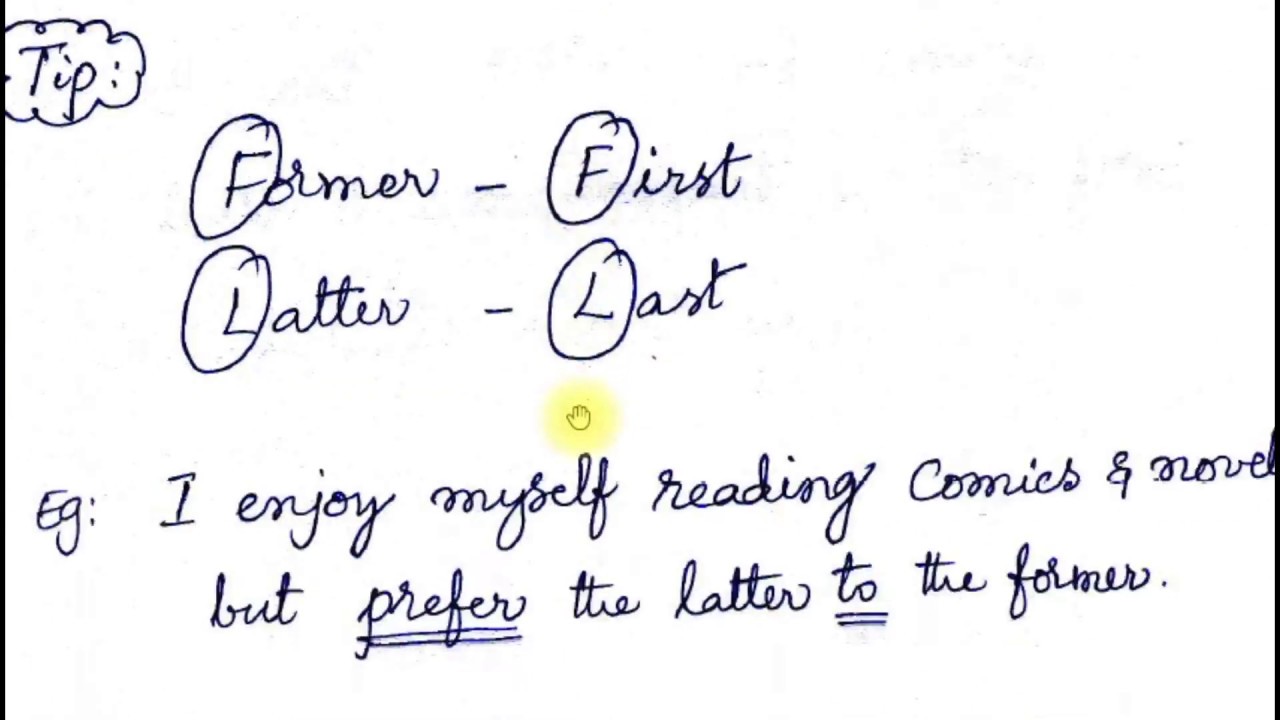 Tip:
Former - First
Latter - Last
Eg: I enjoy myself reading Comics & novel
but prefer the latter to the former.